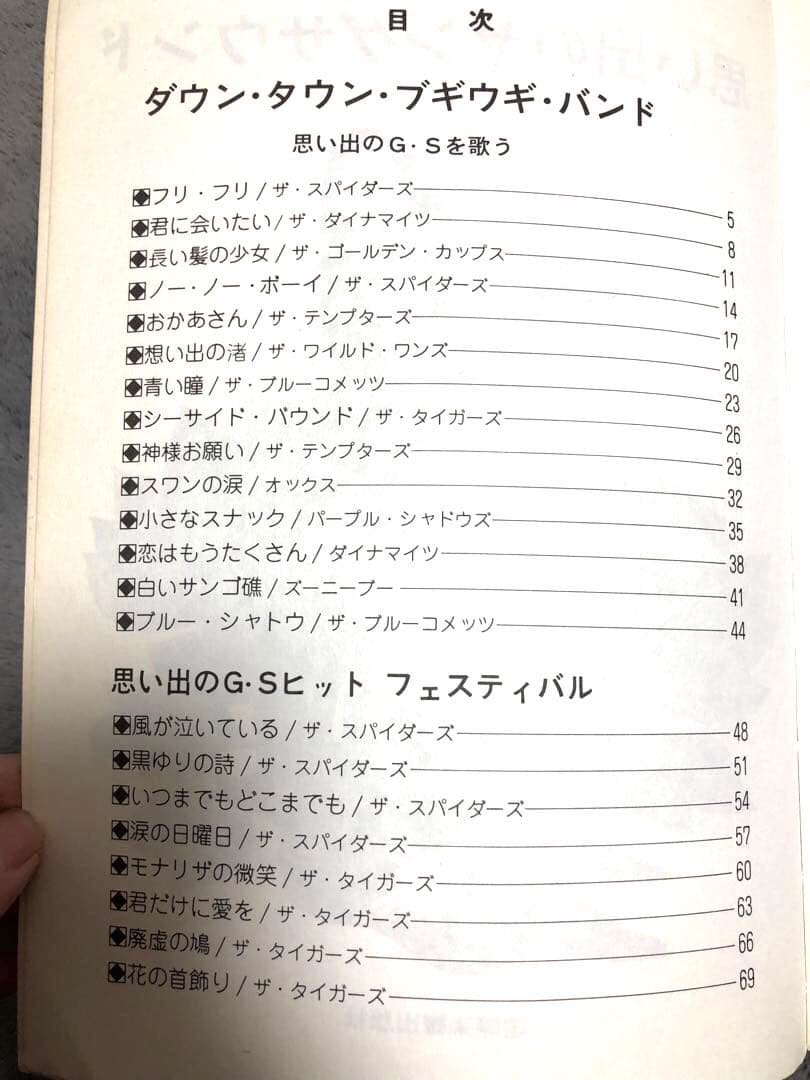 目 次
ダウン・タウン・ブギウギ・バンド
思い出のG・Sを歌う
◆フリ・フリ/ザ・スパイダーズ 5
◆君に会いたい/ザ・ダイナマイツ 8
◆長い髪の少女/ザ・ゴールデン・カップス 11
◆ノー・ノー・ボーイ/ザ・スパイダーズ 14
◆おかあさん/ザ・テンプターズ 17
◆想い出の渚/ザ・ワイルド・ワンズ 20
◆青い瞳/ザ・ブルーコメッツ 23
◆シーサイド・バウンド/ザ・タイガーズ 26
◆神様お願い/ザ・テンプターズ 29
◆スワンの涙/オックス 32
◆小さなスナック/パープル・シャドウズ 35
◆恋はもうたくさん/ダイナマイツ 38
◆白いサンゴ礁/ズーニーブー 41
◆ブルー・シャトウ/ザ・ブルーコメッツ 44
思い出のG・Sヒット フェスティバル
◆風が泣いている/ザ・スパイダーズ 48
◆黒ゆりの詩/ザ・スパイダーズ 51
◆いつまでもどこまでも/ザ・スパイダーズ 54
◆涙の日曜日/ザ・スパイダーズ 57
◆モナリザの微笑/ザ・タイガーズ 60
◆君だけに愛を/ザ・タイガーズ 63
◆廃虚の鳩/ザ・タイガーズ 66
◆花の首飾り/ザ・タイガーズ 69